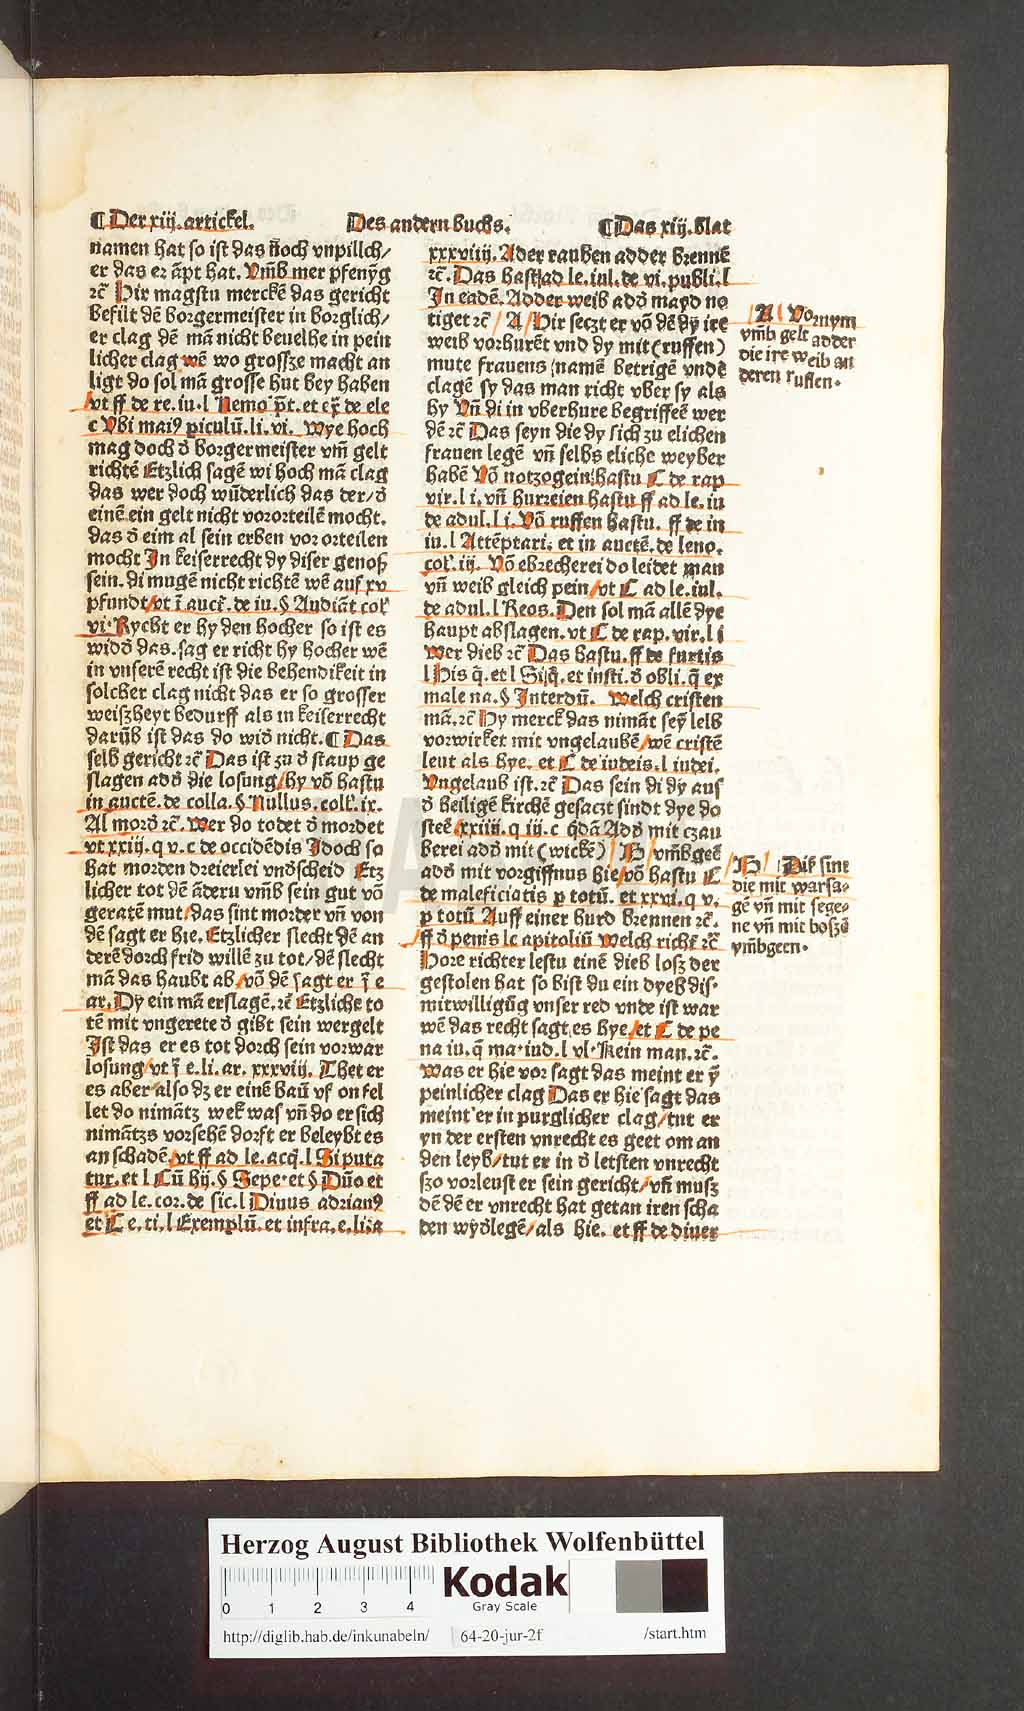 ¶ Der xiij. artickel. Des andern buchs. ¶ Das xiij. blat
namen hat so ist das noch vnpillch/
er das er āpt hat. Vm̄b mer pfenȳg
ꝛc̄ Hir magstu merckē das gericht
befilt dē borgermeister in borglich/
er clag dē mā nicht beuelhe in pein
licher clag wē wo grossze macht an
ligt do sol mā grosse hut bey haben
vt ff de re. iu. l Nemo p̄t. et ex̄. de ele
c Vbi maiꝰ piculū. li. vi. Wye hoch
mag doch ð borgermeister vm̄ gelt
richtē Etzlich sagē wi hoch mā clag
das wer doch wūderlich das der/ð
einē ein gelt nicht vororteilē mocht.
das ð eim al sein erben vor orteilen
mocht In keiserrecht dy diser genoß
sein. di mugē nicht richtē wē auf xv
pfundt/vt ī auct̄. de iu. § Audiāt col̄
vi. Rycht er hy den hocher so ist es
widð das. sag er richt hy hocher wē
in vnserē recht ist die behendikeit in
solcher clag nicht das er so grosser
weißheyt bedurff als in keiserrecht
darūb ist das do wið nicht. ¶ Das
selb gericht ꝛc̄ Das ist zu ð staup ge
slagen adð die losung/hy vō hastu
in auctē. de colla. § Nullus. coll̄. ix.
Al morð ꝛc̄. Wer do todet ð mordet
vt xxiij. q v. c de occidēdis Idoch so
hat morden dreierlei vnðscheid Etz
licher tot dē āderu vm̄b sein gut vō
geratē mut/das sint morder vn̄ von
dē sagt er hie. Etzlicher slecht dē an
derē dorch frid willē zu tot/dē slecht
mā das haubt ab/vō dē sagt er ī e
ar. Dy ein mā erslagē. ꝛc̄ Etzliche to
tē mit vngerete ð gibt sein wergelt
Ist das er es tot dorch sein vorwar
losung/vt ī e. li. ar. xxxviij. Thet er
es aber also dz er einē baū vf on fel
let do nimātz wek was vn̄ do er sich
nimātzs vorsehē dorft er beleybt es
an schadē/vt ff ad le. acq̄. l Si puta
tur. et l Cū hij. § Sepe. et § Dūo et
ff ad le. cor. de sic. l Diuus adrianꝰ
et C e. ti. l Exemplū. et infra. e. li. a
xxxviiij. Ader rauben adder brennē
ꝛc̄. Das hastu ad le. iul. de vi. publi. l
In eadē. Adder weib adð mayd no
tiget ꝛc̄ / A / Hir seczt er vō dē dy ire
weib vorhurēt vnd dy mit (ruffen)
mute frauens namē betrigē vnde
clagē sy das man richt vber sy als
hy Vn̄ di in vberhure begriffeē wer
dē ꝛc̄ Das seyn die dy sich zu elichen
frauen legē vn̄ selbs eliche weyber
habē Vō notzogein: hastu C de rap
vir. l i. vn̄ hurreien hastu ff ad le. iu
de adul. l i. Vō ruffen hastu. ff de in
iu. l Attēptari. et in auctē. de leno.
col̄. iij. Vō ebrecherei do leidet man
vn̄ weib gleich pein/vt C ad le. iul.
de adul. l Reos. Den sol mā allē dye
haupt abslagen. vt C de rap. vir. l i
Wer dieb ꝛc̄ Das hastu. ff de furtis
l His q̄. et l Siq̄. et insti. ð obli. q̄ ex
male na. § Interdū. Welch cristen
mā. ꝛc̄ Hy merck das nimāt sey̅ lelb
vorwirket mit vngelaubē/wē cristē
leut als hye. et C de iudeis. l iudei.
Vngelaub ist. ꝛc̄ Das sein di dy auf
ð heiligē kirchē gesaczt sindt dye do
steē/xxiiij. q iij. c q̄dā Adð mit czau
berei adð mit (wickē) / B / vm̄bgeē
adð mit vorgiffnus hie/vō hastu C
de maleficiatis p totū. et xxvi. q v.
p totū Auff einer hurd brennen ꝛc̄.
ff ð penis l capitoliū Welch richt̄ ꝛc̄
Hore richter lestu einē dieb loß der
gestolen hat so bist du ein dyeb dis⸗
mitwilligūg vnser red vnde ist war
wē das recht sagt es hye/et C de pe
na iu. q̄ ma. iud. l vl. Kein man. ꝛc̄.
Was er hie vor sagt das meint er ȳ
peinlicher clag Das er hie sagt das
meint er in purglicher clag/tut er
yn der ersten vnrecht es geet om an
den leyb/tut er in ð letsten vnrecht
szo vorleust er sein gericht/vn̄ musz
dē dē er vnrecht hat getan iren scha
den wyðlegē/als hie. et ff de diuer
A Vornym
vm̄b gelt adder
die ire weib an
deren ruffen.
B Dis sint
die mit warsa⸗
gē vn̄ mit sege⸗
ne vn̄ mit boszē
vm̄bgeen.
Herzog August Bibliothek Wolfenbüttel
0 1 2 3 4
Kodak
Gray Scale
http://diglib.hab.de/inkunabeln/ 64-20-jur-2f /start.htm
HAB